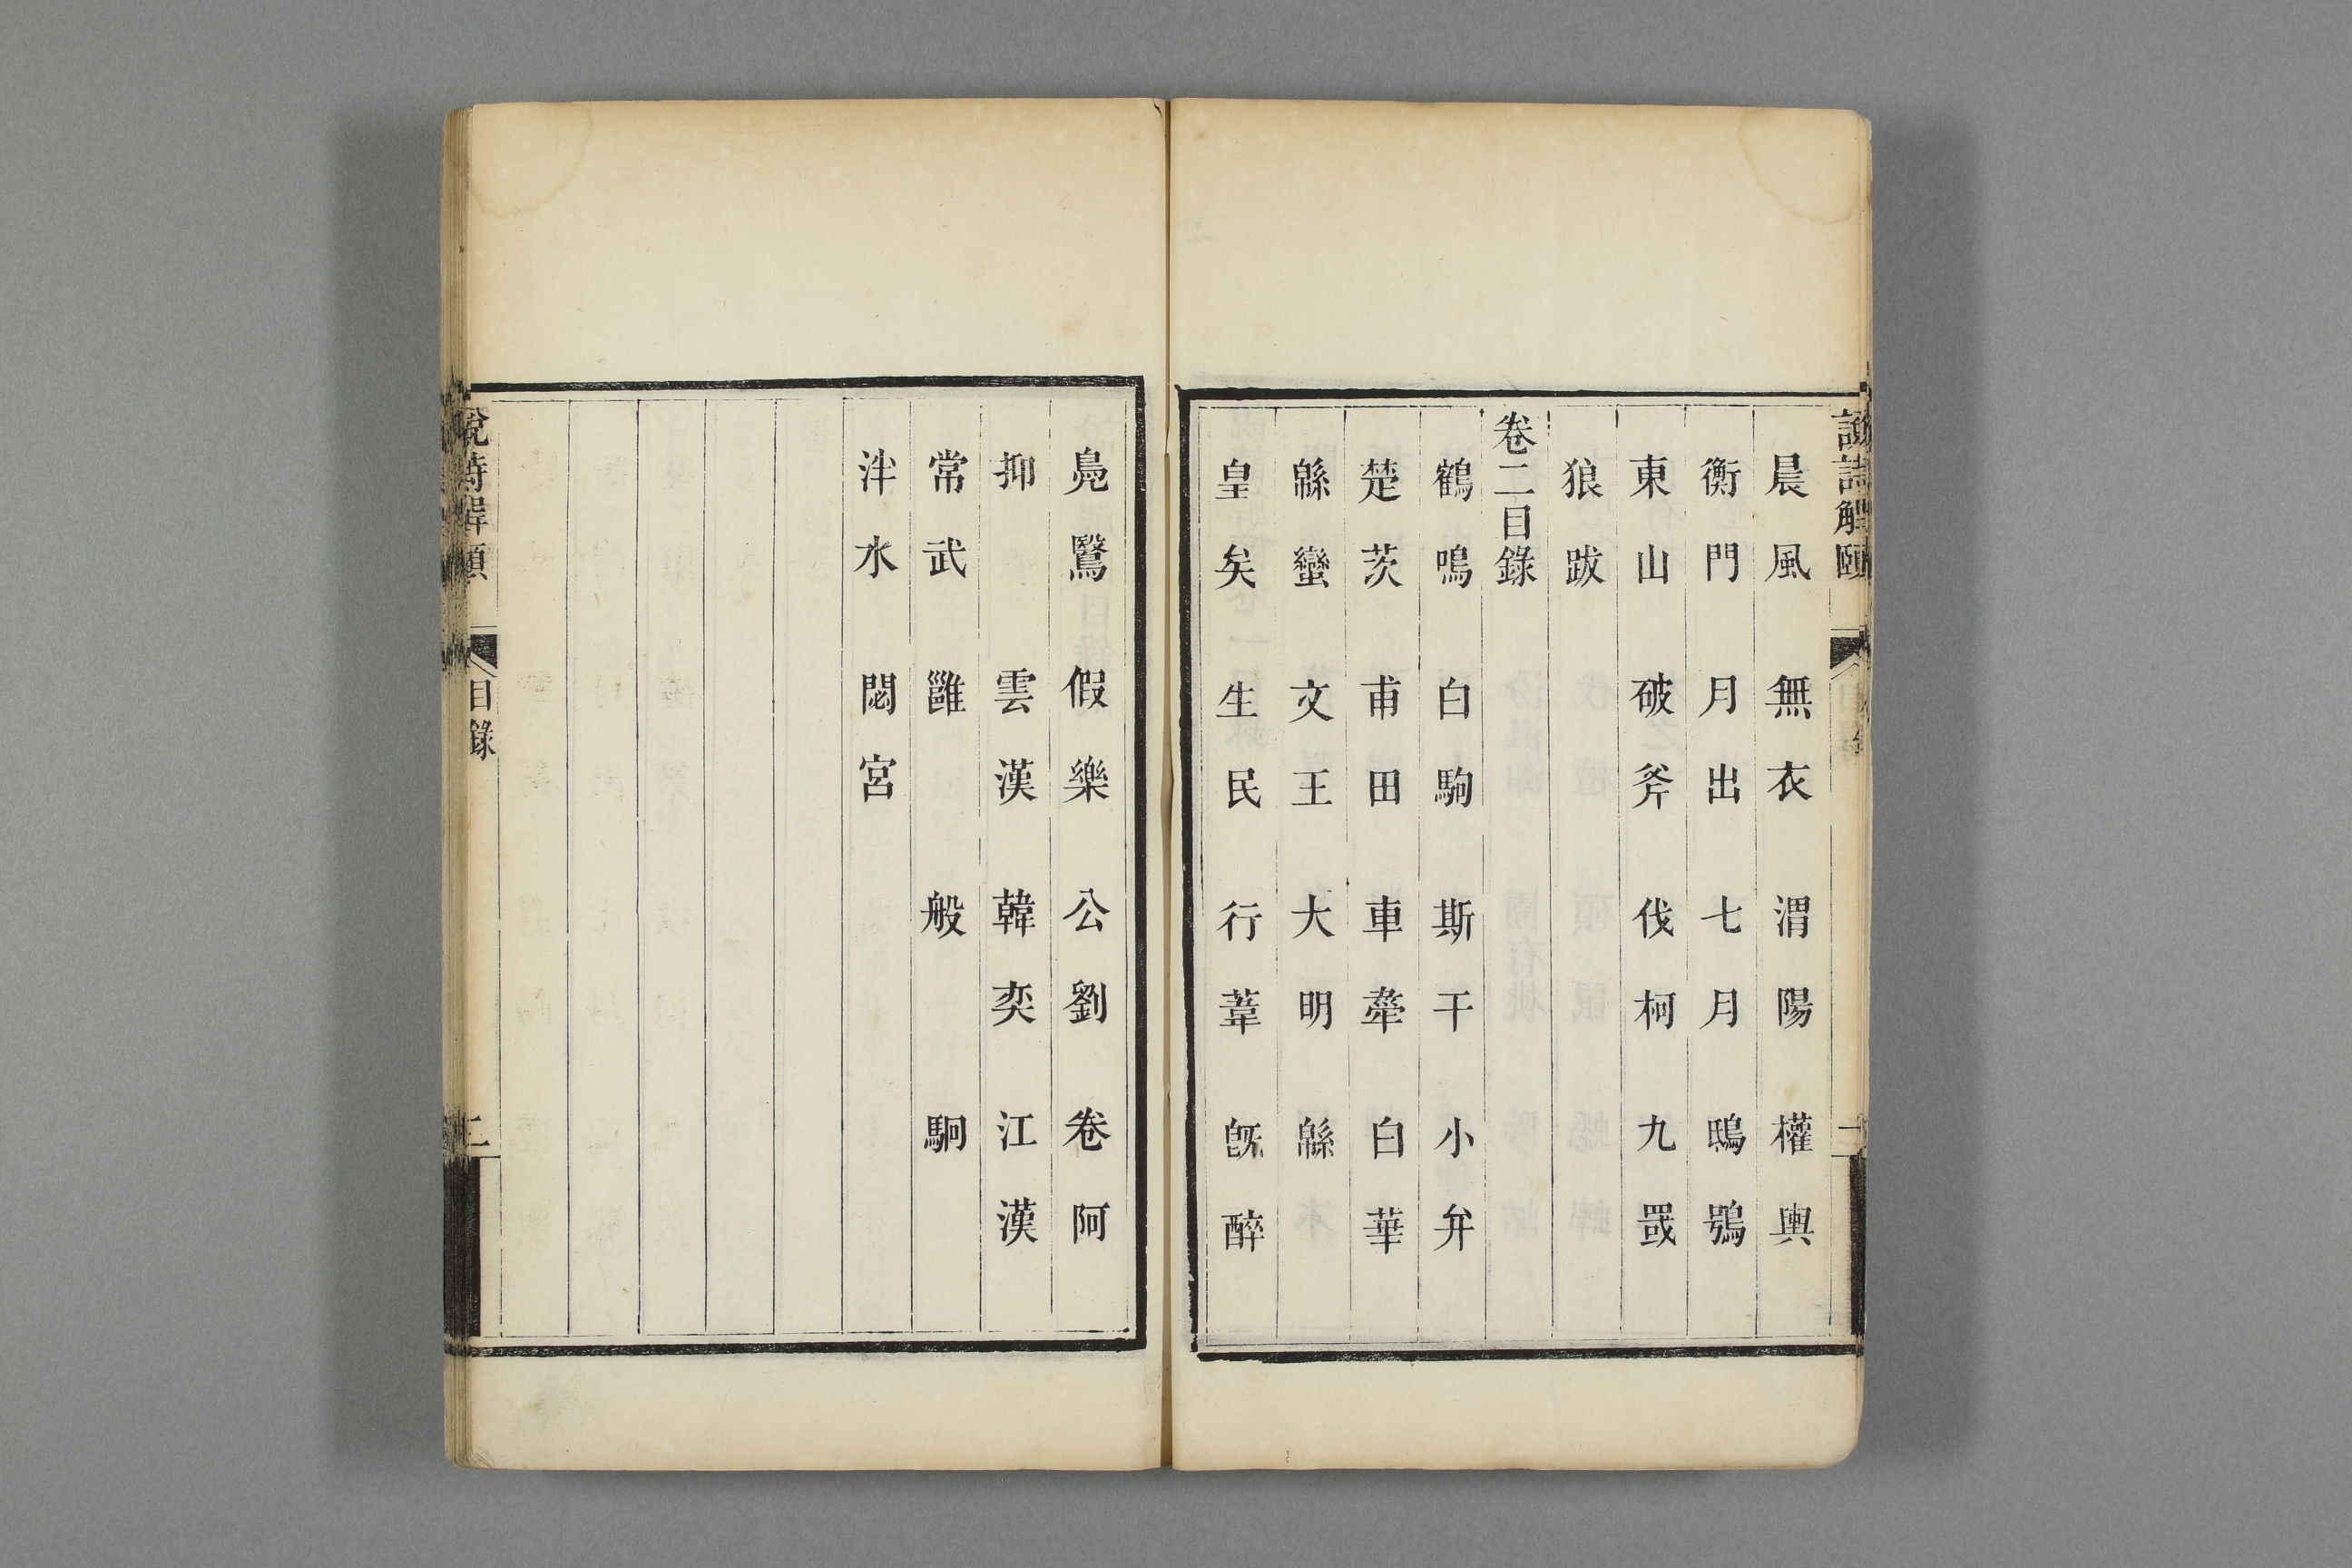 說詩解頤
晨風 無衣 渭陽 權輿
衡門 月出 七月 鴟鴞
東山 破斧 伐柯 九罭
狼跋
卷二目錄
鶴鳴 白駒 斯干 小弁
楚茨 甫田 車舝 白華
緜蠻 文王 大明 緜
皇矣 生民 行葦 旣醉
鳧鷖 假樂 公劉 卷阿
抑 雲漢 韓奕 江漢
常武 雝 般 駉
泮水 閟宮
說詩解頤 目錄 二